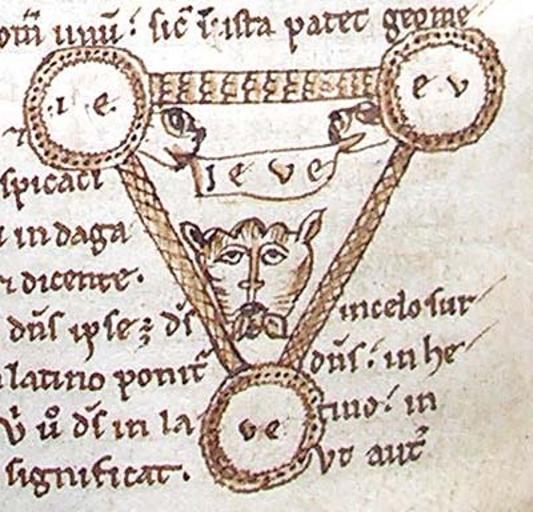 om̄ unū: sic̄ ī ista patet geome
ı e
e v
ı e v e
spicaci
in daga
dicente.
dn̄s ipse: ds̄
in celo sur
latino ponit᷑
dn̄s: in he
v e
v̄ ů ds̄ in la
tino: in
significat.
vt aut᷑